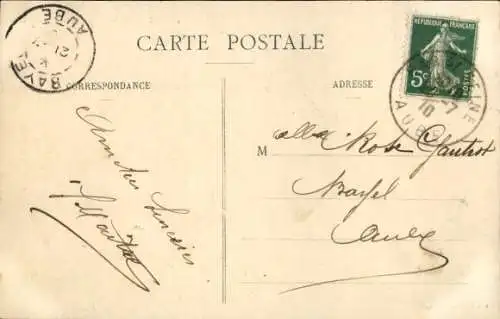 CARTE POSTALE
CORRESPONDANCE
ADRESSE
REPUBLIQUE FRANÇAISE
5c POSTES
BAYEL
21
AUBE
10
AUBE
M
Rose Gautrot
Bayel
Aube
Amitiés sincères